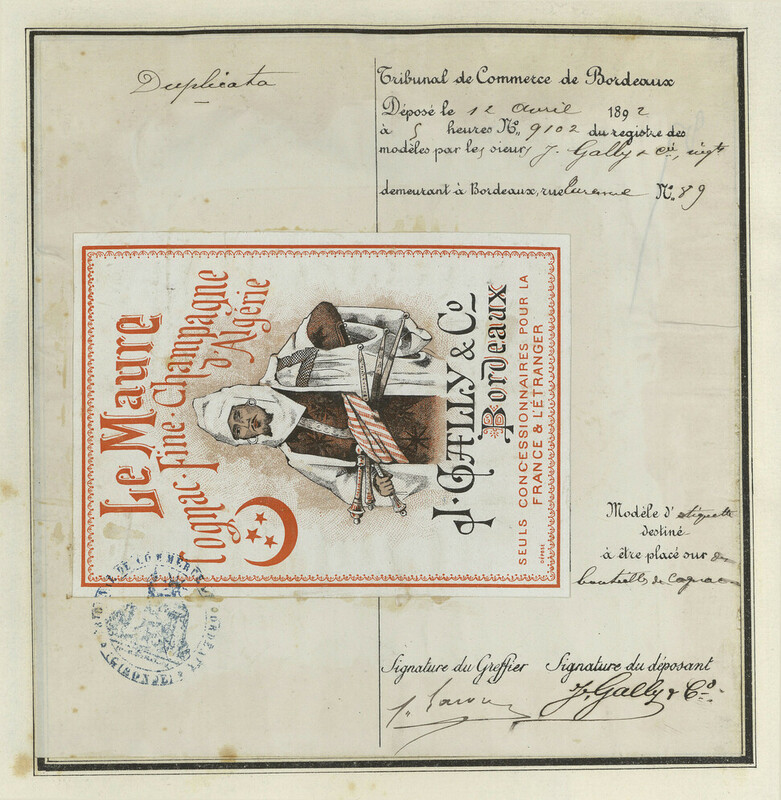 Duplicata
Tribunal de Commerce de Bordeaux
Déposé le 12 avril 1892
à 5 heures No. 9102 du registre des
modèles par les sieurs J. Gally & Cie,
demeurant à Bordeaux, rue No. 89
Le Maure
Cognac · Fine · Champagne
d'Algérie
J. GALLY & Co
Bordeaux
SEULS CONCESSIONNAIRES POUR LA
FRANCE & L'ÉTRANGER
DÉPOSÉ
Modèle d'étiquette
destiné
à être placé sur
bouteilles de Cognac
TRIBUNAL DE COMMERCE DE BORDEAUX
(GIRONDE)
Signature du Greffier Signature du déposant
J. Gally & Co